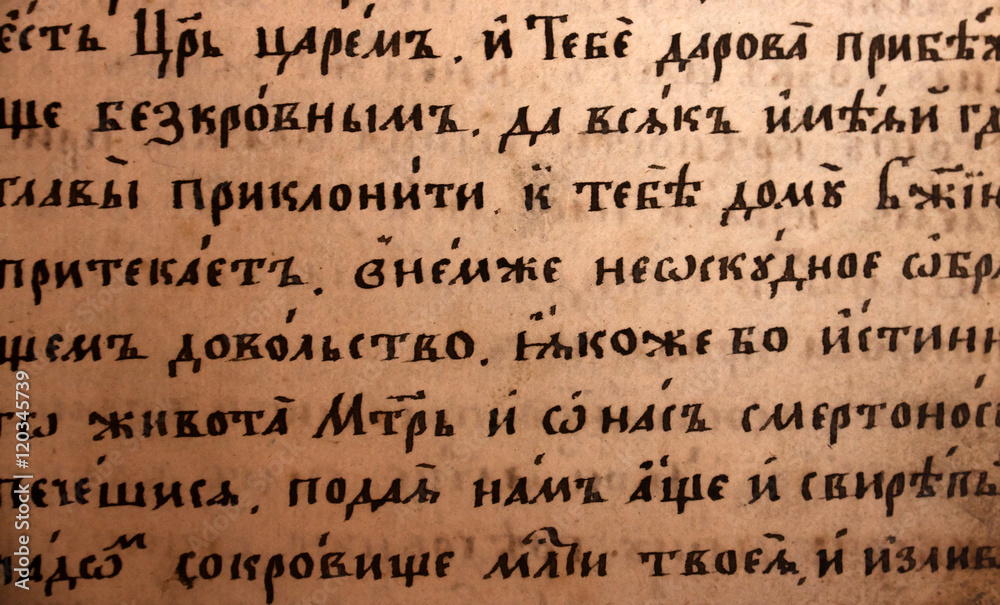 є҆́сть Цр҃ь царе́мъ. и҆ Тебѐ дарова̀ прибѣ́
ще безкро́внымъ. да всѧ́къ и҆мѣ́ѧй
главы̀ приклони́ти. к̾ тебѣ̀ домꙋ̀ Бж҃їи
притека́етъ. в̾не́мже неѡскꙋ́дное ѡ҆бра
щемъ дово́льство. ꙗ҆́коже бо и҆́стинн
живота̀ Мт҃рь и҆ ѡ҆ на́съ смертоно́с
пече́шисѧ. пода́ѧ на́мъ а҆́ще и҆ свирѣ́пы
сокро́вище мл҃ти твоеѧ̀, и҆ и҆злив
Adobe Stock | #120345739